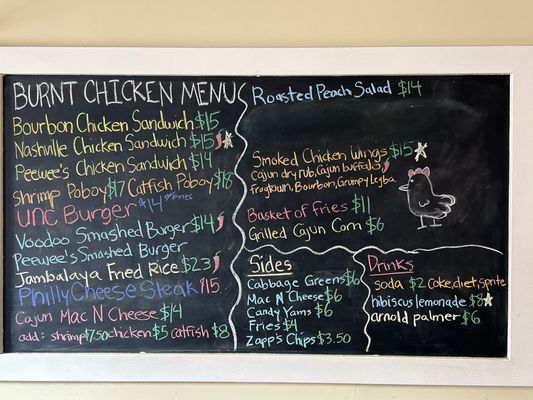 BURNT CHICKEN MENU
Bourbon Chicken Sandwich $15
Nashville Chicken Sandwich $15
Peewee's Chicken Sandwich $14
Shrimp Poboy $17 Catfish Poboy $18
UNC Burger $14 w/Fries
Voodoo Smashed Burger $14
Peewee's Smashed Burger
Jambalaya Fried Rice $23
Philly Cheese Steak $15
Cajun Mac N Cheese $14
add: shrimp $7.50 chicken $5 catfish $8
Roasted Peach Salad $14
Smoked Chicken Wings $15
Cajun dry rub, Cajun buffalo,
Frogtown, Bourbon, Grumpy Legba
Basket of Fries $11
Grilled Cajun Corn $6
Sides
Cabbage Greens $6
Mac N Cheese $6
Candy Yams $6
Fries $4
Zapp's Chips $3.50
Drinks
soda $2 coke, diet, sprite
hibiscus lemonade $8
arnold palmer $6